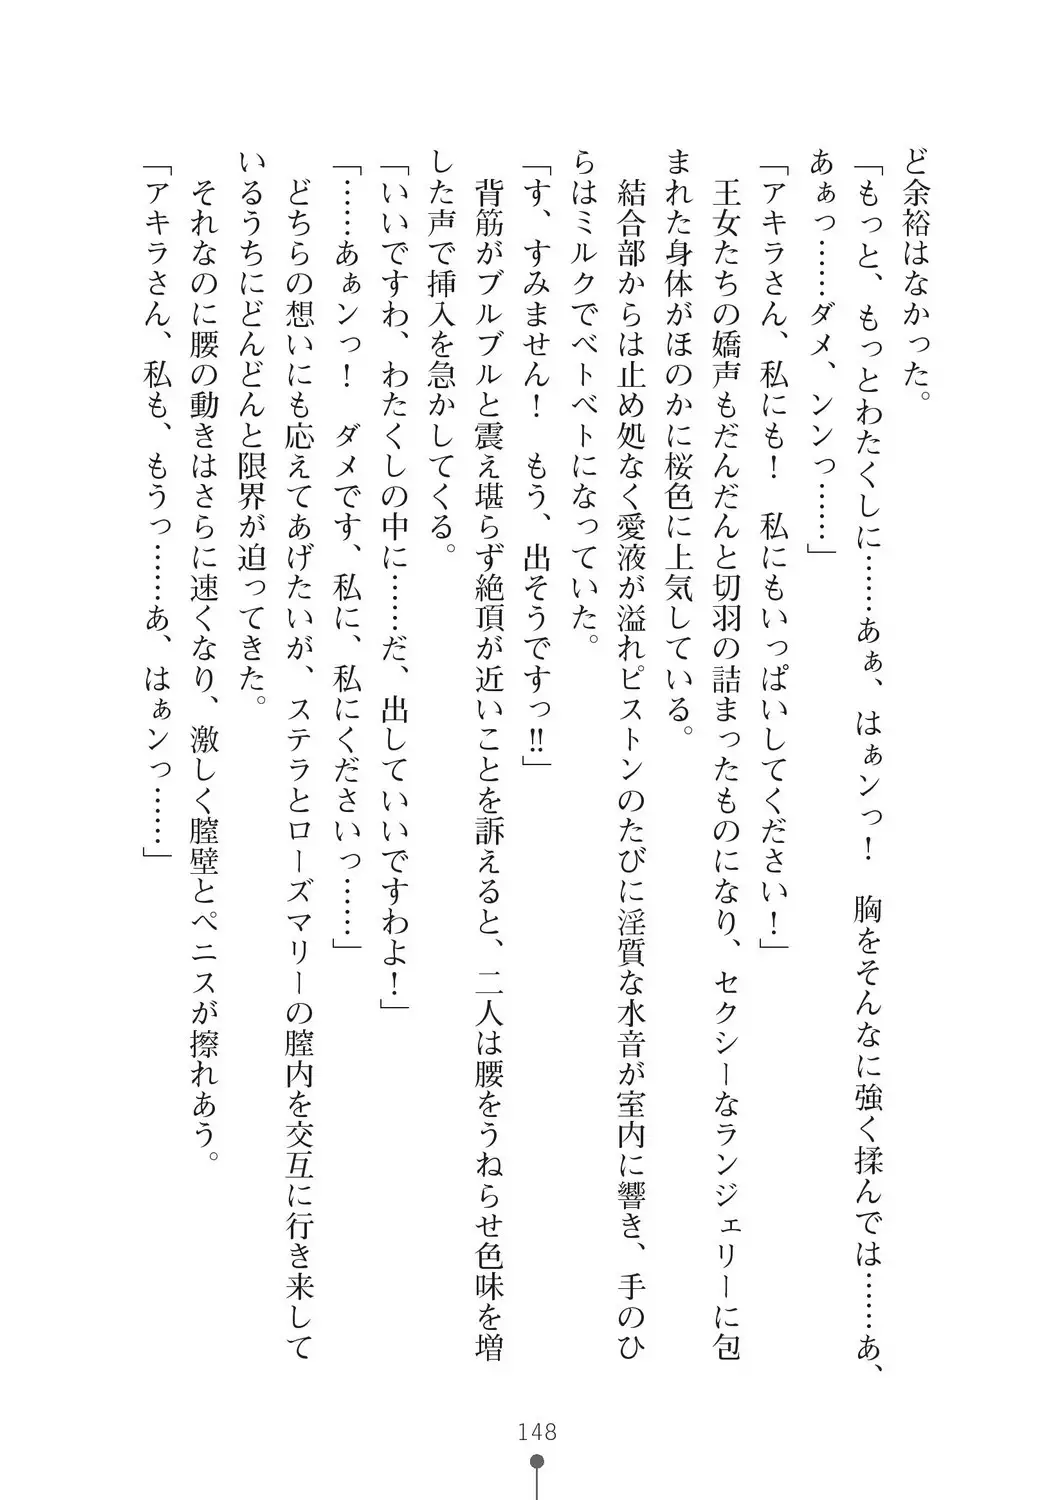 ど余裕はなかった。
「もっと、もっとわたくしに……あぁ、はぁンっ！　胸をそんなに強く揉んでは……あ、
あぁっ……ダメ、ンンっ……」
「アキラさん、私にも！　私にもいっぱいしてください！」
　王女たちの嬌声もだんだんと切羽の詰まったものになり、セクシーなランジェリーに包
まれた身体がほのかに桜色に上気している。
　結合部からは止め処なく愛液が溢れピストンのたびに淫質な水音が室内に響き、手のひ
らはミルクでベトベトになっていた。
「す、すみません！　もう、出そうですっ!!」
　背筋がブルブルと震え堪らず絶頂が近いことを訴えると、二人は腰をうねらせ色味を増
した声で挿入を急かしてくる。
「いいですわ、わたくしの中に……だ、出していいですわよ！」
「……あぁンっ！　ダメです、私に、私にくださいっ……」
　どちらの想いにも応えてあげたいが、ステラとローズマリーの膣内を交互に行き来して
いるうちにどんどんと限界が迫ってきた。
　それなのに腰の動きはさらに速くなり、激しく膣壁とペニスが擦れあう。
「アキラさん、私も、もうっ……あ、はぁンっ……」
148